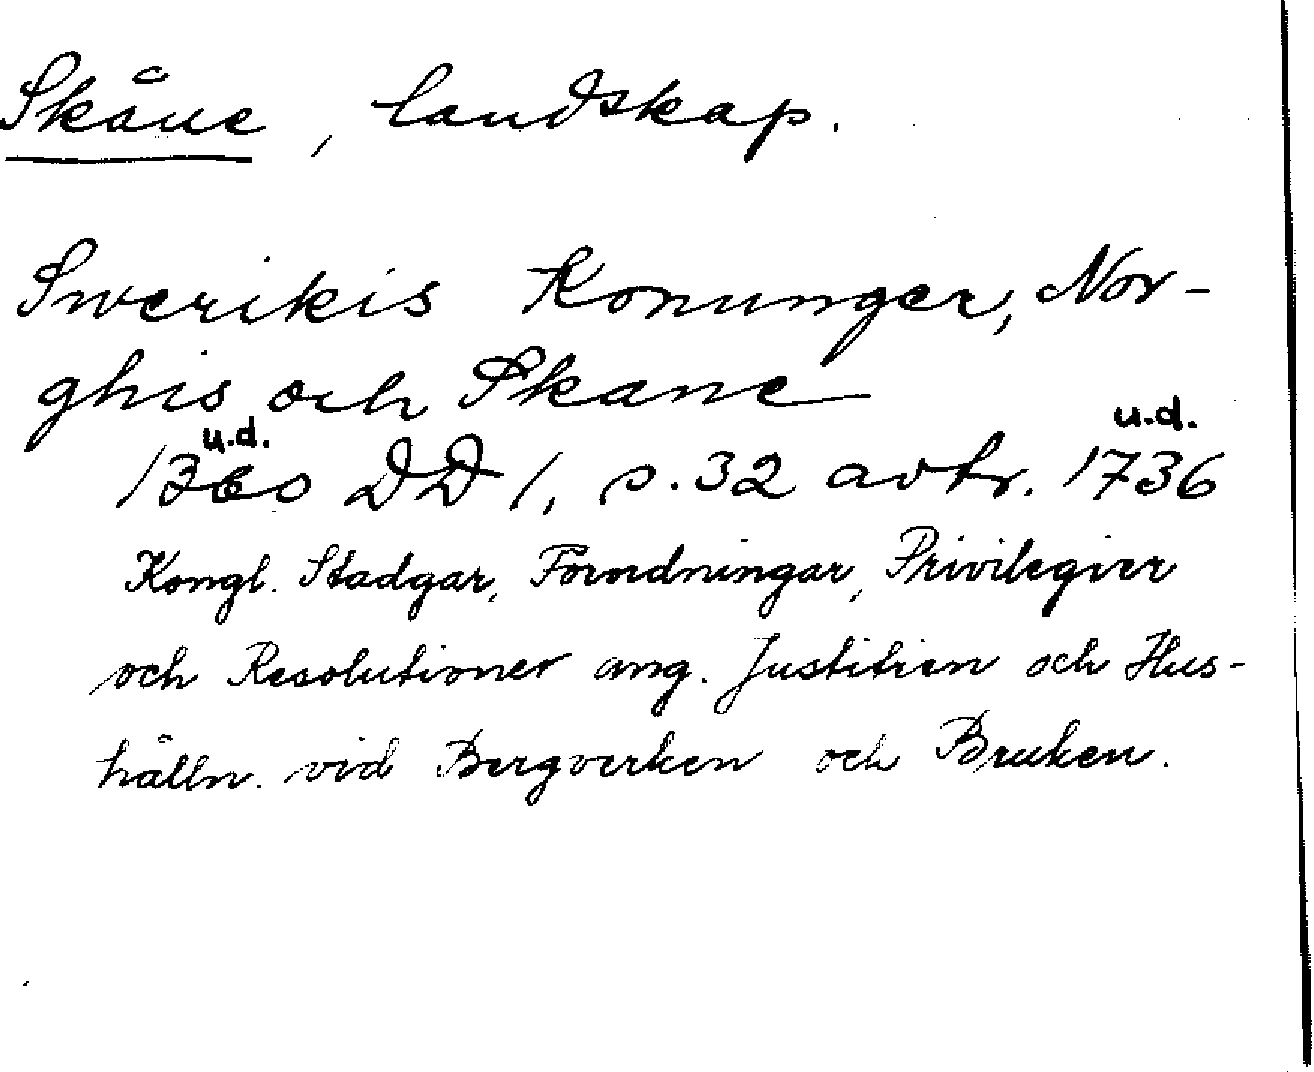 Skåne, landskap.
Swerikis Konunger, Nor-
ghis och Skane
u.d. u.d.
1360 DD 1, s. 32 avtr. 1736
Kongl. Stadgar, Förordningar, Privilegier
och Resolutioner ang. Justitien och Hus-
hålln. vid Bergverken och Bruken.